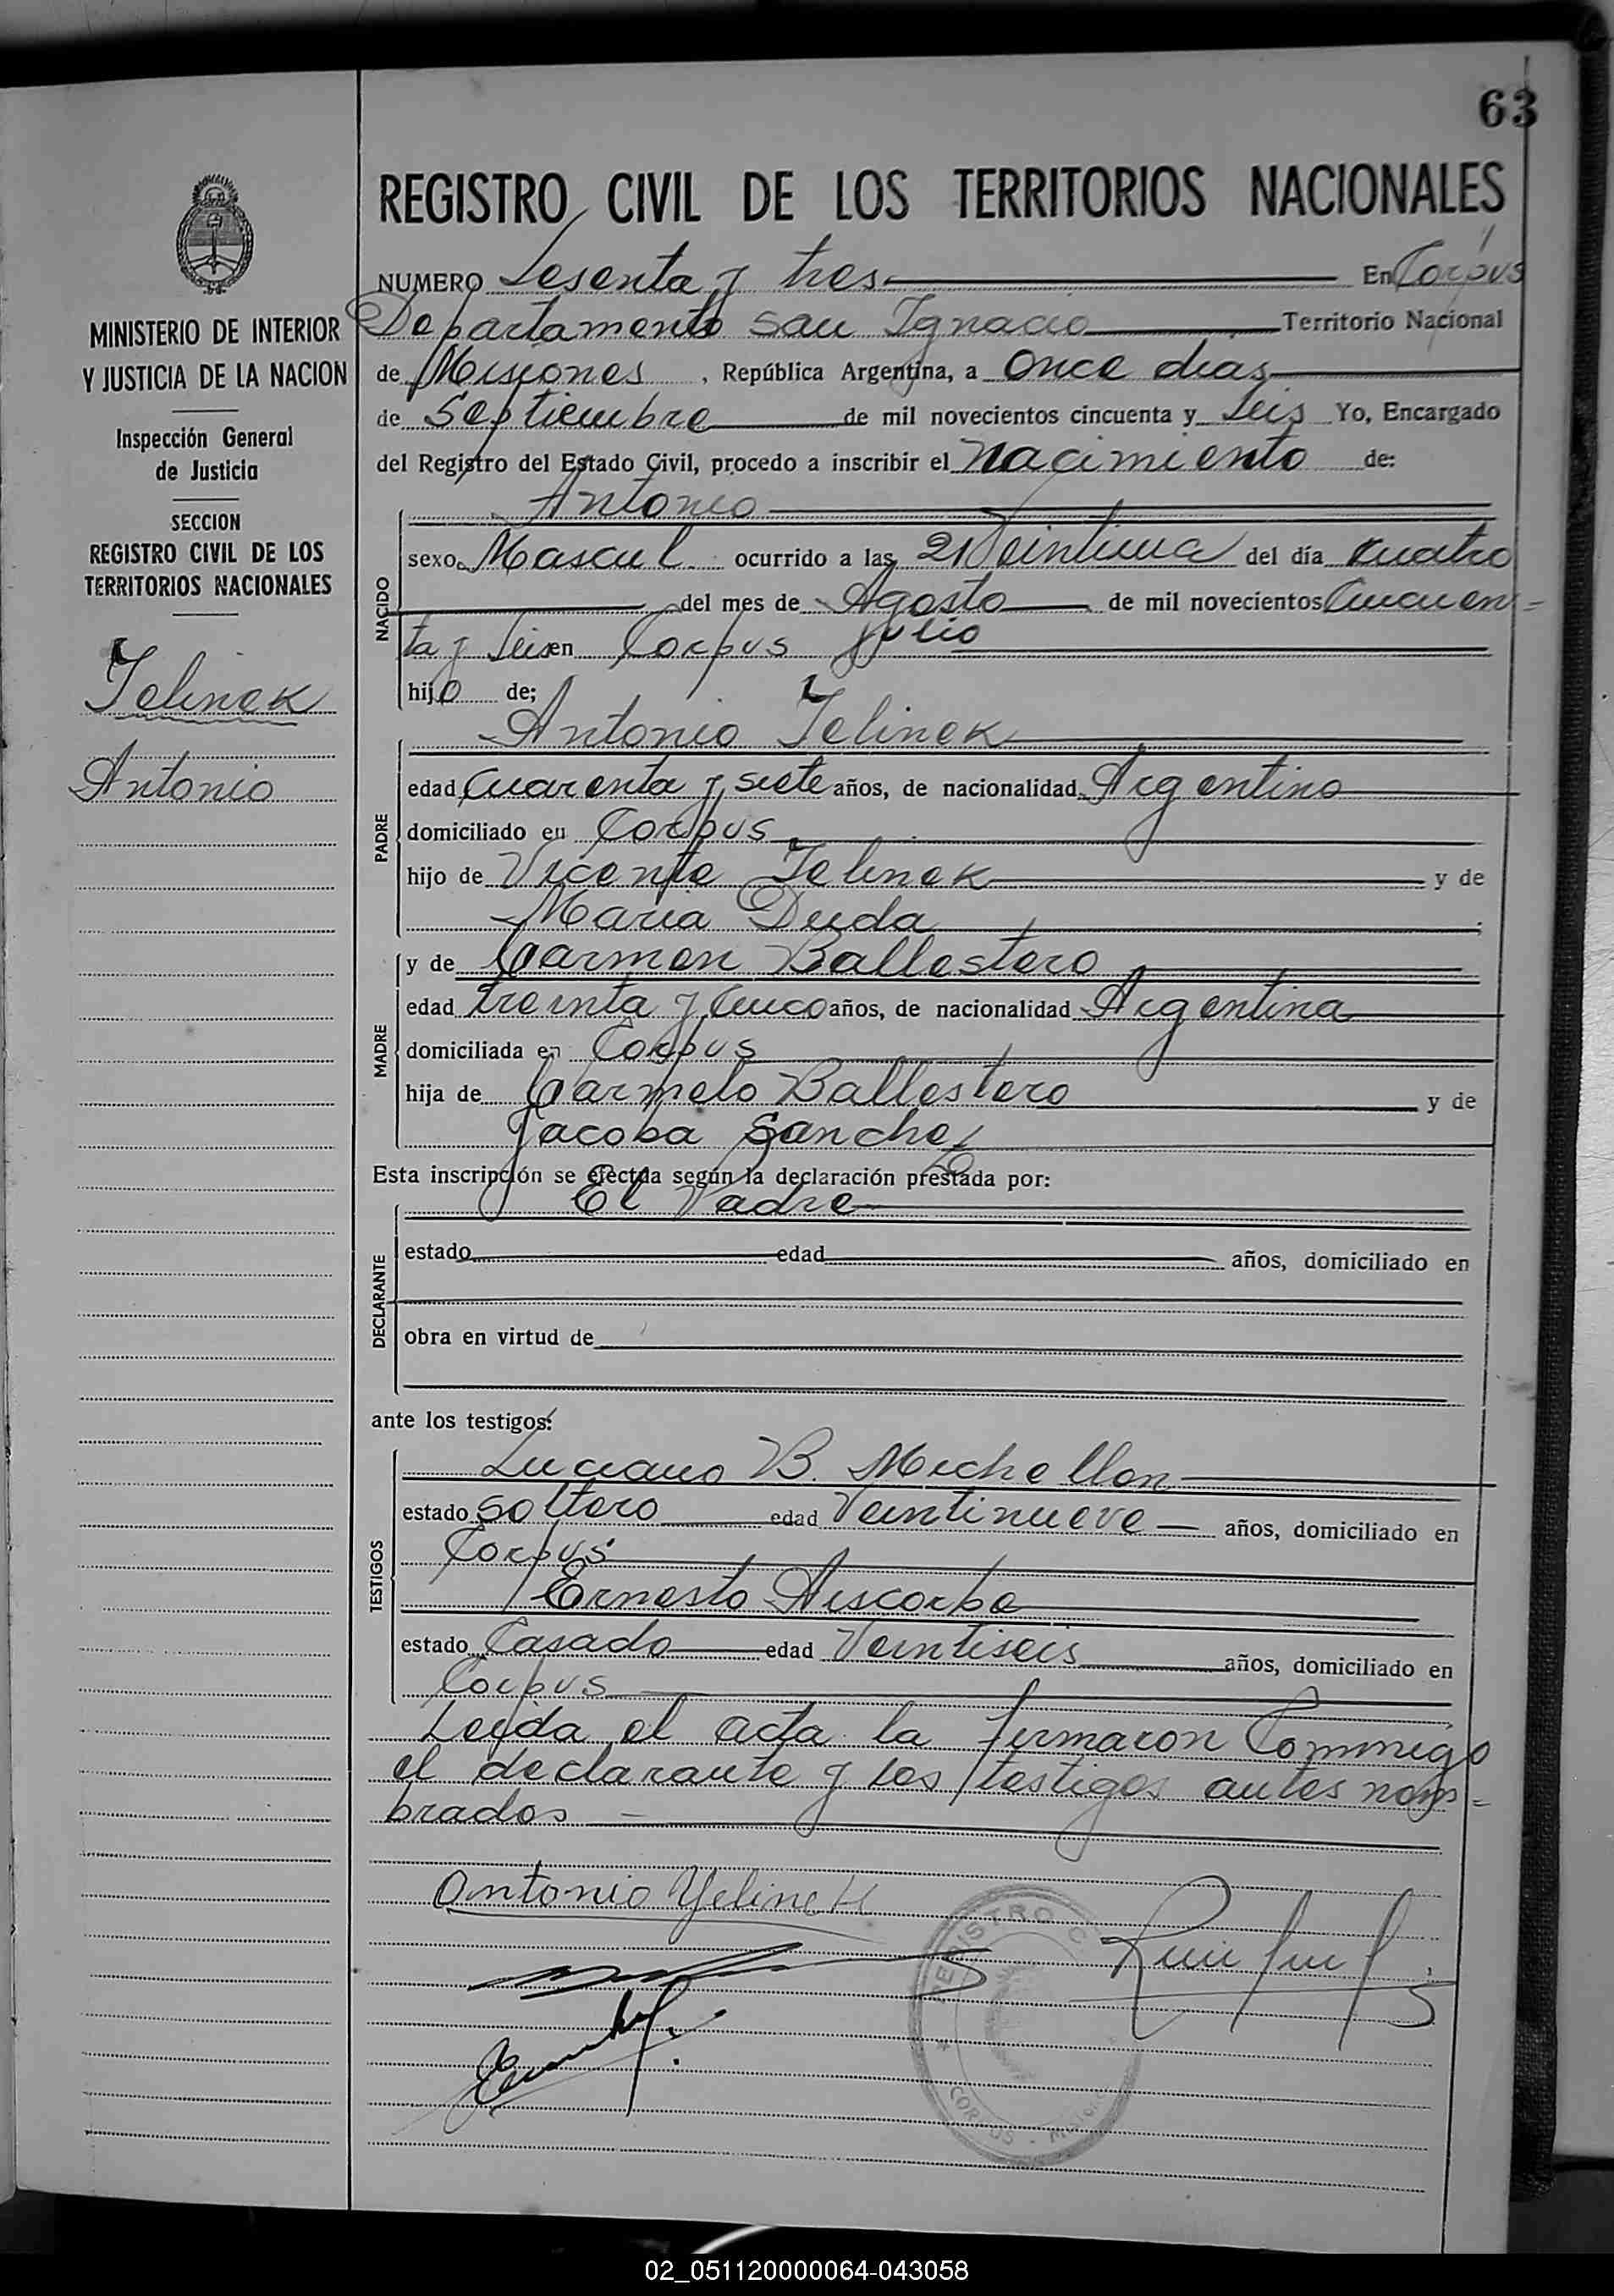 63
REGISTRO CIVIL DE LOS TERRITORIOS NACIONALES
NUMERO Sesenta y tres En Corpus
Departamento San Ignacio Territorio Nacional
de Misiones, República Argentina, a Once dias
de Septiembre de mil novecientos cincuenta y Seis Yo, Encargado
del Registro del Estado Civil, procedo a inscribir el Nacimiento de:
MINISTERIO DE INTERIOR
Y JUSTICIA DE LA NACION
Inspección General
de Justicia
SECCION
REGISTRO CIVIL DE LOS
TERRITORIOS NACIONALES
Jelinek
Antonio
NACIDO
Antonio
sexo Mascul. ocurrido a las 21 Veintiuna del día cuatro
del mes de Agosto de mil novecientos Cincuen=
ta y Seis en Corpus Julio
hijo de;
PADRE
Antonio Jelinek
edad Cuarenta y siete años, de nacionalidad Argentino
domiciliado en Corpus
hijo de Vicente Jelinek y de
Maria Duda
MADRE
y de Carmen Ballestero
edad treinta y Cinco años, de nacionalidad Argentina
domiciliada en Corpus
hija de Carmelo Ballestero y de
Jacoba Sanchez
Esta inscripción se efectúa según la declaración prestada por:
DECLARANTE
El Padre
estado edad años, domiciliado en
obra en virtud de
ante los testigos:
TESTIGOS
Luciano B. Michellon
estado Soltero edad Veintinueve años, domiciliado en
Corpus
Ernesto
estado Casado edad Veintiseis años, domiciliado en
Corpus
Leyda el acta la firmaron Commigo
el declarante y los testigos antes nom=
brados
Antonio Yelinek
REGISTRO C
CORPUS - 
02_051120000064-043058